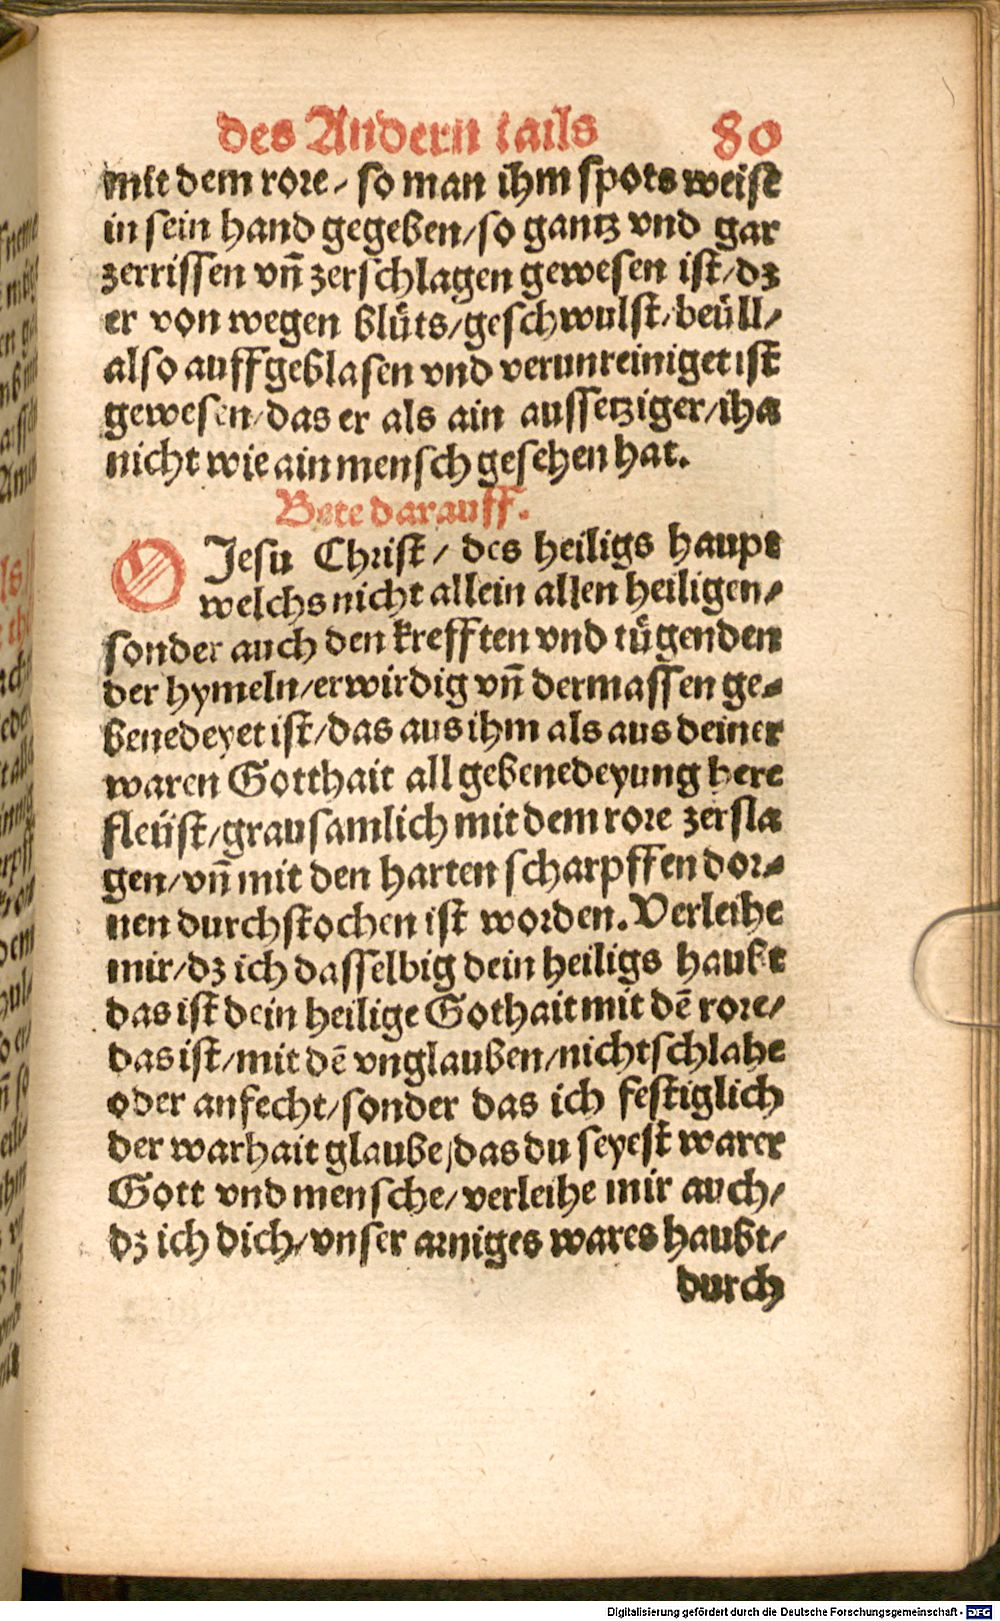 des Andern tails 80
mit dem rore / so man ihm spots weist
in sein hand gegeben/so gantz vnd gar
zerrissen vñ zerschlagen gewesen ist/dz
er von wegen blůts/geschwulst/beüll/
also auffgeblasen vnd verunreiniget ist
gewesen/das er als ain aussetziger/ihn
nicht wie ain mensch gesehen hat.
Bete darauff.
O Jesu Christ / des heiligs haupt
welchs nicht allein allen heiligen/
sonder auch den krefften vnd tůgenden
der hymeln/erwirdig vñ dermassen ge⸗
benedeyet ist/das aus ihm als aus deiner
waren Gotthait all gebenedeyung here
fleüst/grausamlich mit dem rore zersla
gen/vñ mit den harten scharpffen dor⸗
nen durchstochen ist worden. Verleihe
mir/dz ich dasselbig dein heiligs haubt
das ist dein heilige Gothait mit dē rore/
das ist/mit dē vnglauben/nicht schlahe
oder anfecht/sonder das ich festiglich
der warhait glaube/das du seyest warer
Gott vnd mensche/verleihe mir auch/
dz ich dich/vnser ainiges wares haubt/
durch
Digitalisierung gefördert durch die Deutsche Forschungsgemeinschaft - DFG